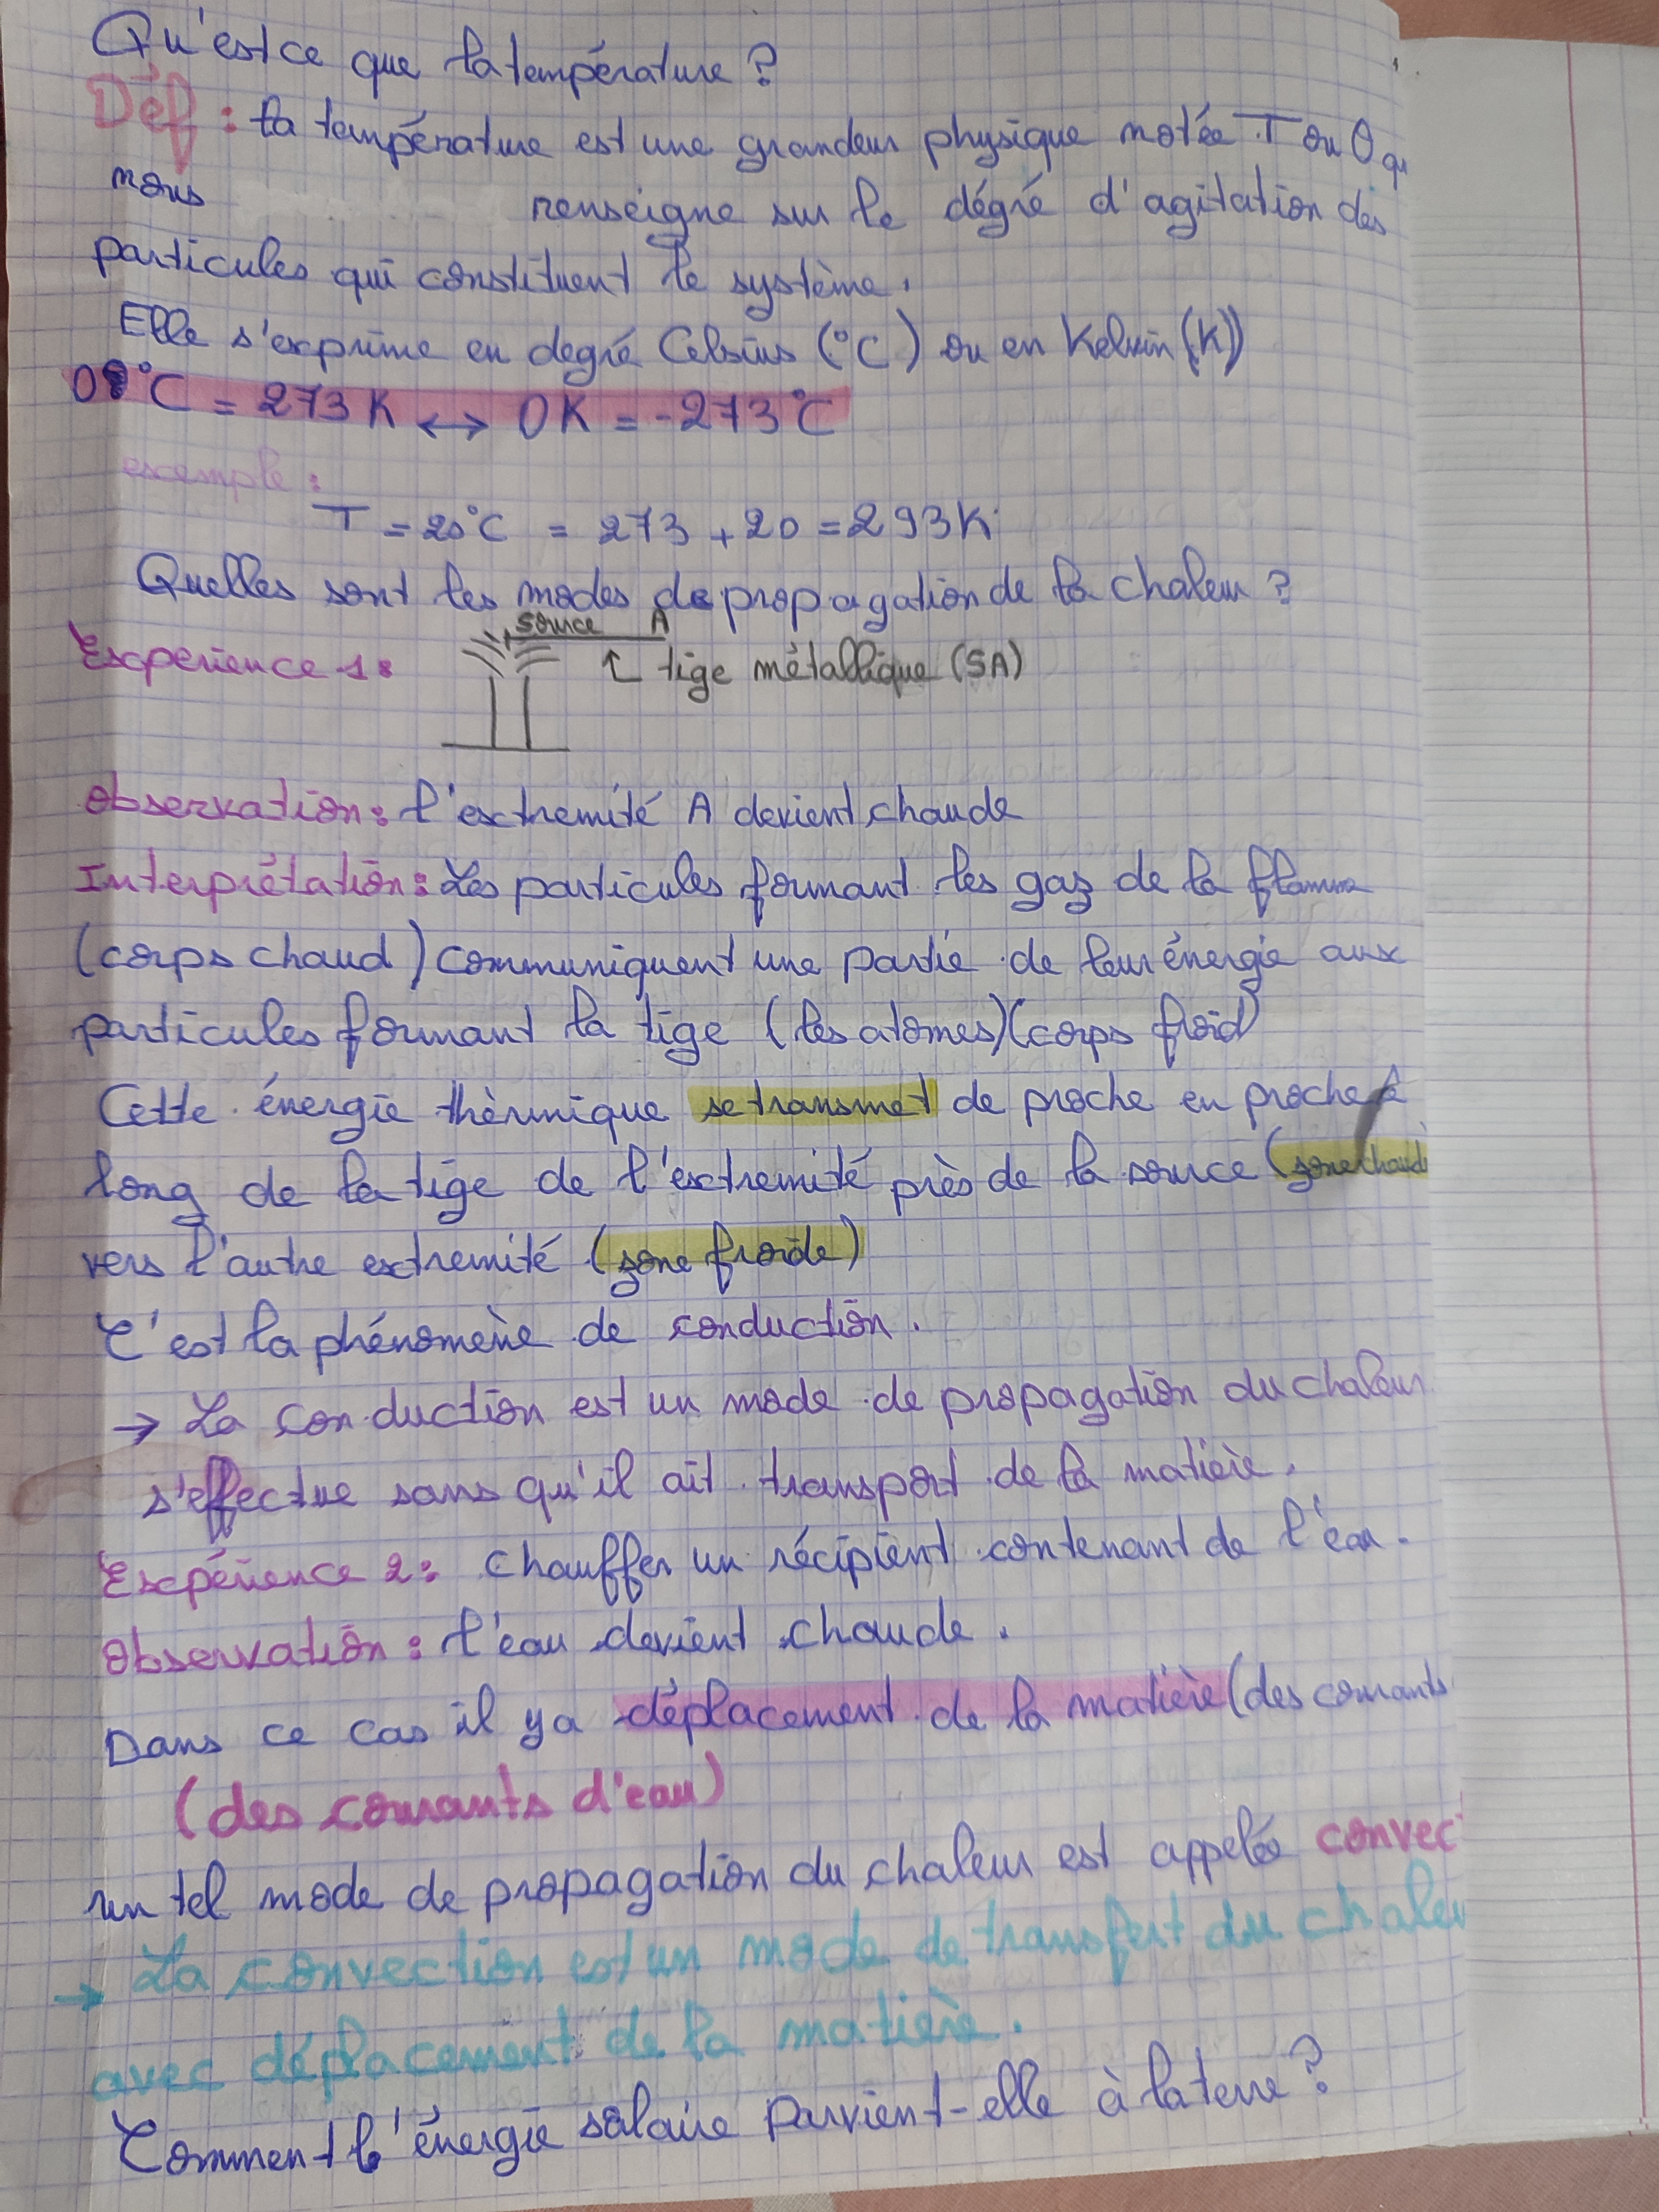 Qu'est ce que la température ?
Déf : la température est une grandeur physique notée T ou θ qu
nous renseigne sur le dégré d'agitation des
particules qui constituent le système.
Elle s'exprime en degré Celsius (°C) ou en Kelvin (K)
0°C = 273 K ↔ 0K = -273°C
exemple :
T = 20°C = 273 + 20 = 293K
Quelles sont les modes de propagation de la chaleur ?
source A
Expérience 1 :
↑ tige métallique (SA)
Observation : l'extremité A devient chaude
Interprétation : Les particules formant les gaz de la flamme
(corps chaud) communiquent une partie de leur énergie aux
particules formant la tige (les atomes) (corps froid)
Cette énergie thèrmique se transmet de proche en proche
long de la tige de l'extremité près de la source (zone chaude
vers l'autre extremité (zone froide)
C'est la phénomène de conduction.
→ La conduction est un mode de propagation du chaleur
s'effectue sans qu'il ait transport de la matière.
Expérience 2 : chauffer un récipient contenant de l'eau.
Observation : l'eau devient chaude.
Dans ce cas il y a déplacement de la matière (des courants
(des courants d'eau)
un tel mode de propagation du chaleur est appelée convec
→ La convection est un mode de transfert du chaleu
avec déplacement de la matière.
Comment l'énergie solaire parvient-elle à la terre ?